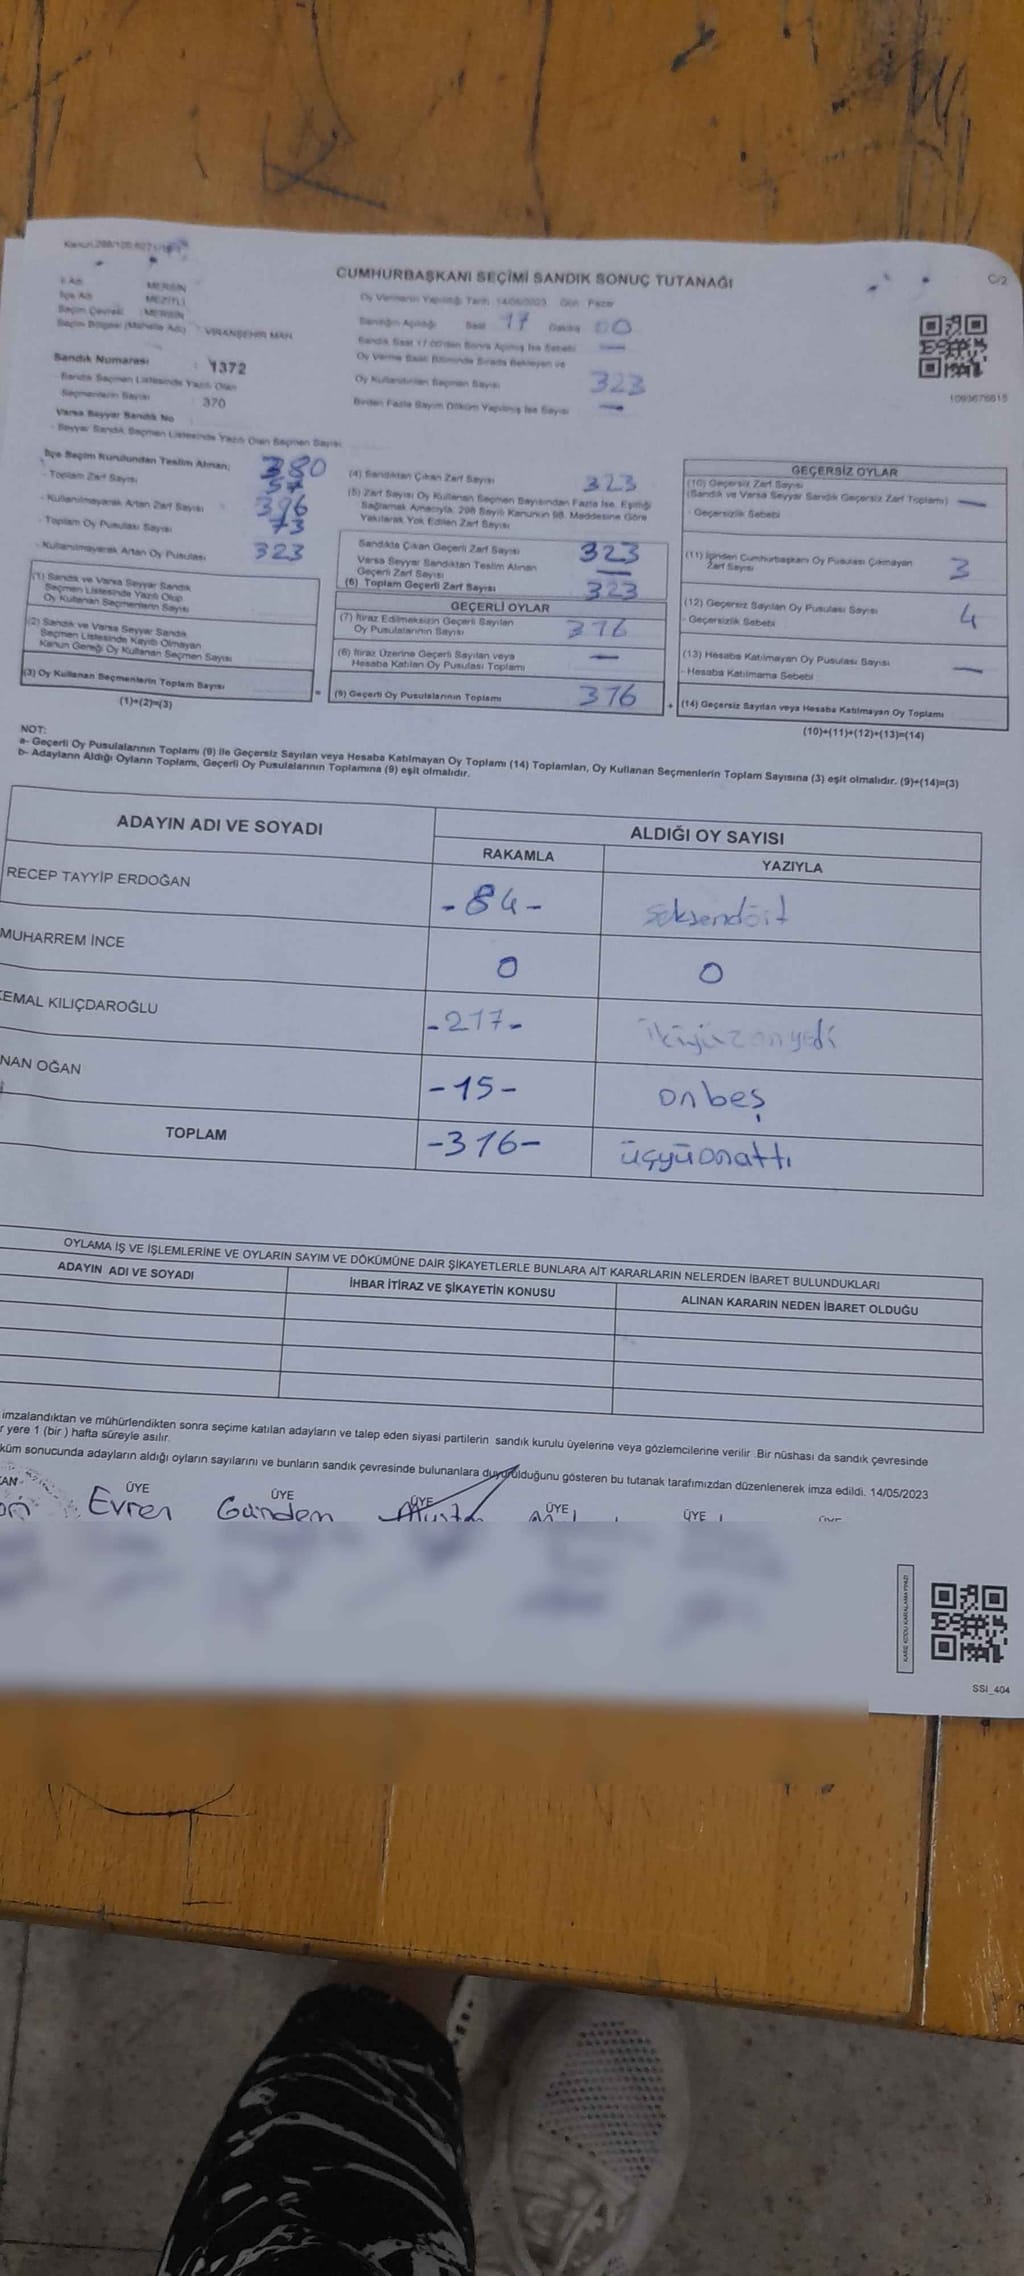 C/2
CUMHURBAŞKANI SEÇİMİ SANDIK SONUÇ TUTANAĞI
İl Adı MERSİN
İlçe Adı MEZİTLİ
Seçim Çevresi : MERSİN
Seçim Bölgesi (Mahalle Adı) : VİRANŞEHİR MAH.
Oy Vermenin Yapıldığı Tarih 14/05/2023 Gün Pazar
Sandığın Açıldığı Saat 17 Dakika 00
Sandık Saat 17.00'den Sonra Açılmış İse Sebebi —
Oy Verme Saati Bitiminde Sırada Bekleyen ve
Oy Kullandırılan Seçmen Sayısı 323
Birden Fazla Sayım Döküm Yapılmış İse Sayısı —
1093676615
Sandık Numarası : 1372
- Sandık Seçmen Listesinde Yazılı Olan
Seçmenlerin Sayısı : 370
Varsa Seyyar Sandık No
- Seyyar Sandık Seçmen Listesinde Yazılı Olan Seçmen Sayısı
İlçe Seçim Kurulundan Teslim Alınan;
- Toplam Zarf Sayısı 380
- Kullanılmayarak Artan Zarf Sayısı 57
- Toplam Oy Pusulası Sayısı 396
- Kullanılmayarak Artan Oy Pusulası 73
323
(1) Sandık ve Varsa Seyyar Sandık
Seçmen Listesinde Yazılı Olup
Oy Kullanan Seçmenlerin Sayısı
(2) Sandık ve Varsa Seyyar Sandık
Seçmen Listesinde Kayıtlı Olmayan
Kanun Gereği Oy Kullanan Seçmen Sayısı
(3) Oy Kullanan Seçmenlerin Toplam Sayısı
(1)+(2)=(3)
=
(4) Sandıktan Çıkan Zarf Sayısı 323
(5) Zarf Sayısı Oy Kullanan Seçmen Sayısından Fazla İse, Eşitliği
Sağlamak Amacıyla, 298 Sayılı Kanunun 98. Maddesine Göre
Yakılarak Yok Edilen Zarf Sayısı
Sandıkta Çıkan Geçerli Zarf Sayısı 323
Varsa Seyyar Sandıktan Teslim Alınan
Geçerli Zarf Sayısı —
(6) Toplam Geçerli Zarf Sayısı 323
GEÇERLİ OYLAR
(7) İtiraz Edilmeksizin Geçerli Sayılan
Oy Pusulalarının Sayısı 316
(8) İtiraz Üzerine Geçerli Sayılan veya
Hesaba Katılan Oy Pusulası Toplamı —
(9) Geçerli Oy Pusulalarının Toplamı 316
+
GEÇERSİZ OYLAR
(10) Geçersiz Zarf Sayısı
(Sandık ve Varsa Seyyar Sandık Geçersiz Zarf Toplamı) —
- Geçersizlik Sebebi
(11) İçinden Cumhurbaşkanı Oy Pusulası Çıkmayan
Zarf Sayısı 3
(12) Geçersiz Sayılan Oy Pusulası Sayısı 4
- Geçersizlik Sebebi
(13) Hesaba Katılmayan Oy Pusulası Sayısı —
- Hesaba Katılmama Sebebi
(14) Geçersiz Sayılan veya Hesaba Katılmayan Oy Toplamı
(10)+(11)+(12)+(13)=(14)
NOT:
a- Geçerli Oy Pusulalarının Toplamı (9) ile Geçersiz Sayılan veya Hesaba Katılmayan Oy Toplamı (14) Toplamları, Oy Kullanan Seçmenlerin Toplam Sayısına (3) eşit olmalıdır. (9)+(14)=(3)
b- Adayların Aldığı Oyların Toplamı, Geçerli Oy Pusulalarının Toplamına (9) eşit olmalıdır.
ADAYIN ADI VE SOYADI ALDIĞI OY SAYISI
RAKAMLA YAZIYLA
RECEP TAYYİP ERDOĞAN -84- seksendört
MUHARREM İNCE 0 0
KEMAL KILIÇDAROĞLU -217- ikiyüzonyedi
NAN OĞAN -15- onbeş
TOPLAM -316- üçyüonattı
OYLAMA İŞ VE İŞLEMLERİNE VE OYLARIN SAYIM VE DÖKÜMÜNE DAİR ŞİKAYETLERLE BUNLARA AİT KARARLARIN NELERDEN İBARET BULUNDUKLARI
ADAYIN ADI VE SOYADI İHBAR İTİRAZ VE ŞİKAYETİN KONUSU ALINAN KARARIN NEDEN İBARET OLDUĞU
imzalandıktan ve mühürlendikten sonra seçime katılan adayların ve talep eden siyasi partilerin sandık kurulu üyelerine veya gözlemcilerine verilir. Bir nüshası da sandık çevresinde
r yere 1 (bir ) hafta süreyle asılır.
küm sonucunda adayların aldığı oyların sayılarını ve bunların sandık çevresinde bulunanlara duyurulduğunu gösteren bu tutanak tarafımızdan düzenlenerek imza edildi. 14/05/2023
KAN ÜYE ÜYE ÜYE ÜYE ÜYE
Evren Gündem
KARE KODU KARALAMAYINIZ!
SSI_404